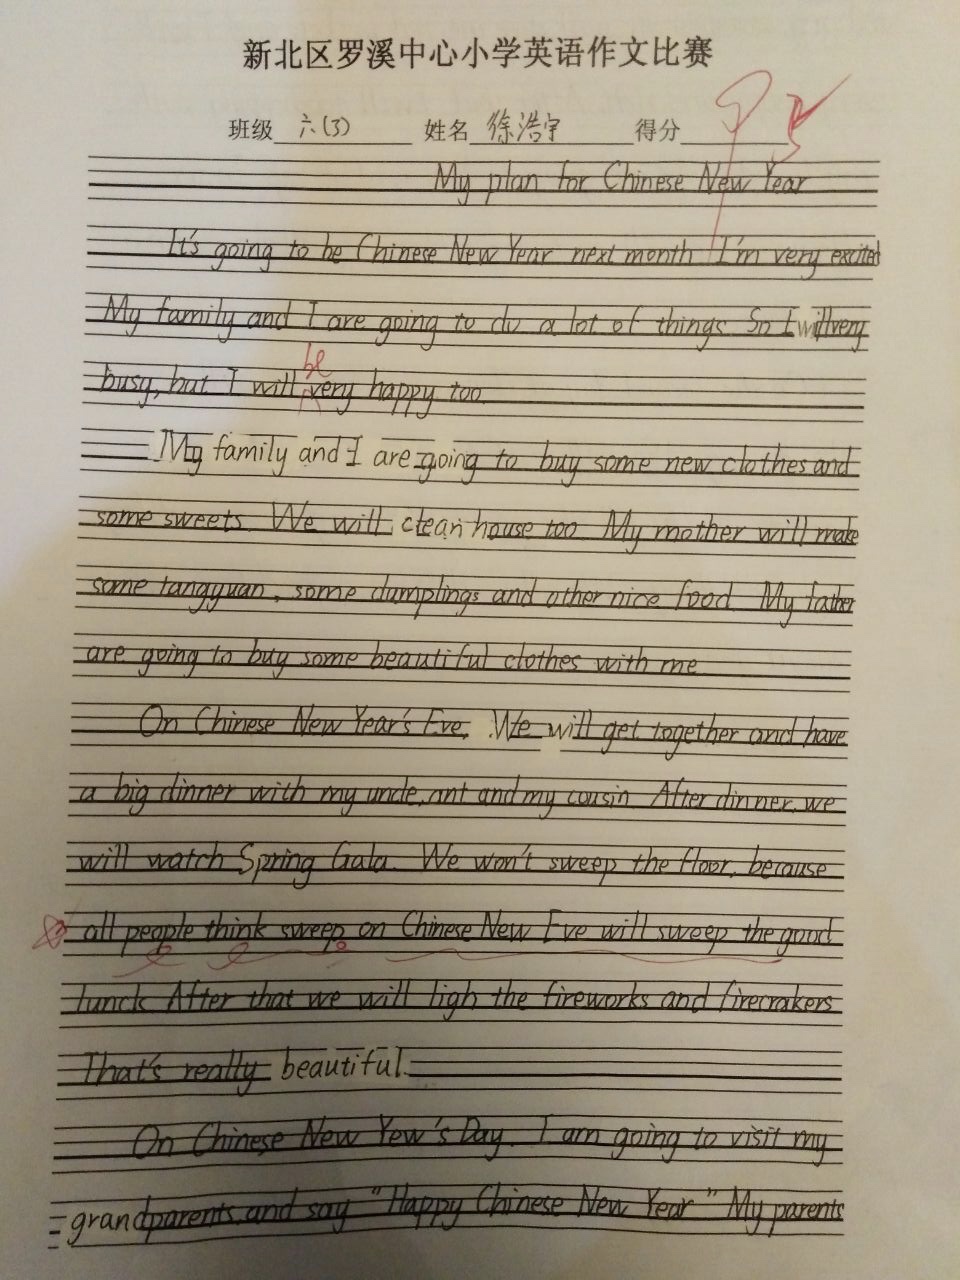 新北区罗溪中心小学英语作文比赛
班级 六(3) 姓名 徐浩宇 得分
My plan for Chinese New Year
It's going to be Chinese New Year next month I'm very excited
My family and I are going to do a lot of things. So I will very
be
busy, but I will very happy too.
My family and I are going to buy some new clothes and
some sweets. We will clean house too. My mother will make
some tangyuan, some dumplings and other nice food. My father
are going to buy some beautiful clothes with me.
On Chinese New Year's Eve, We will get together and have
a big dinner with my uncle, ant and my cousin. After dinner, we
will watch Spring Gala. We won't sweep the floor, because
all people think sweep on Chinese New Eve will sweep the good
lunck. After that we will ligh the fireworks and firecrakers
That's really beautiful.
On Chinese New Yew's Day. I am going to visit my
grandparents and say "Happy Chinese New Year" My parents